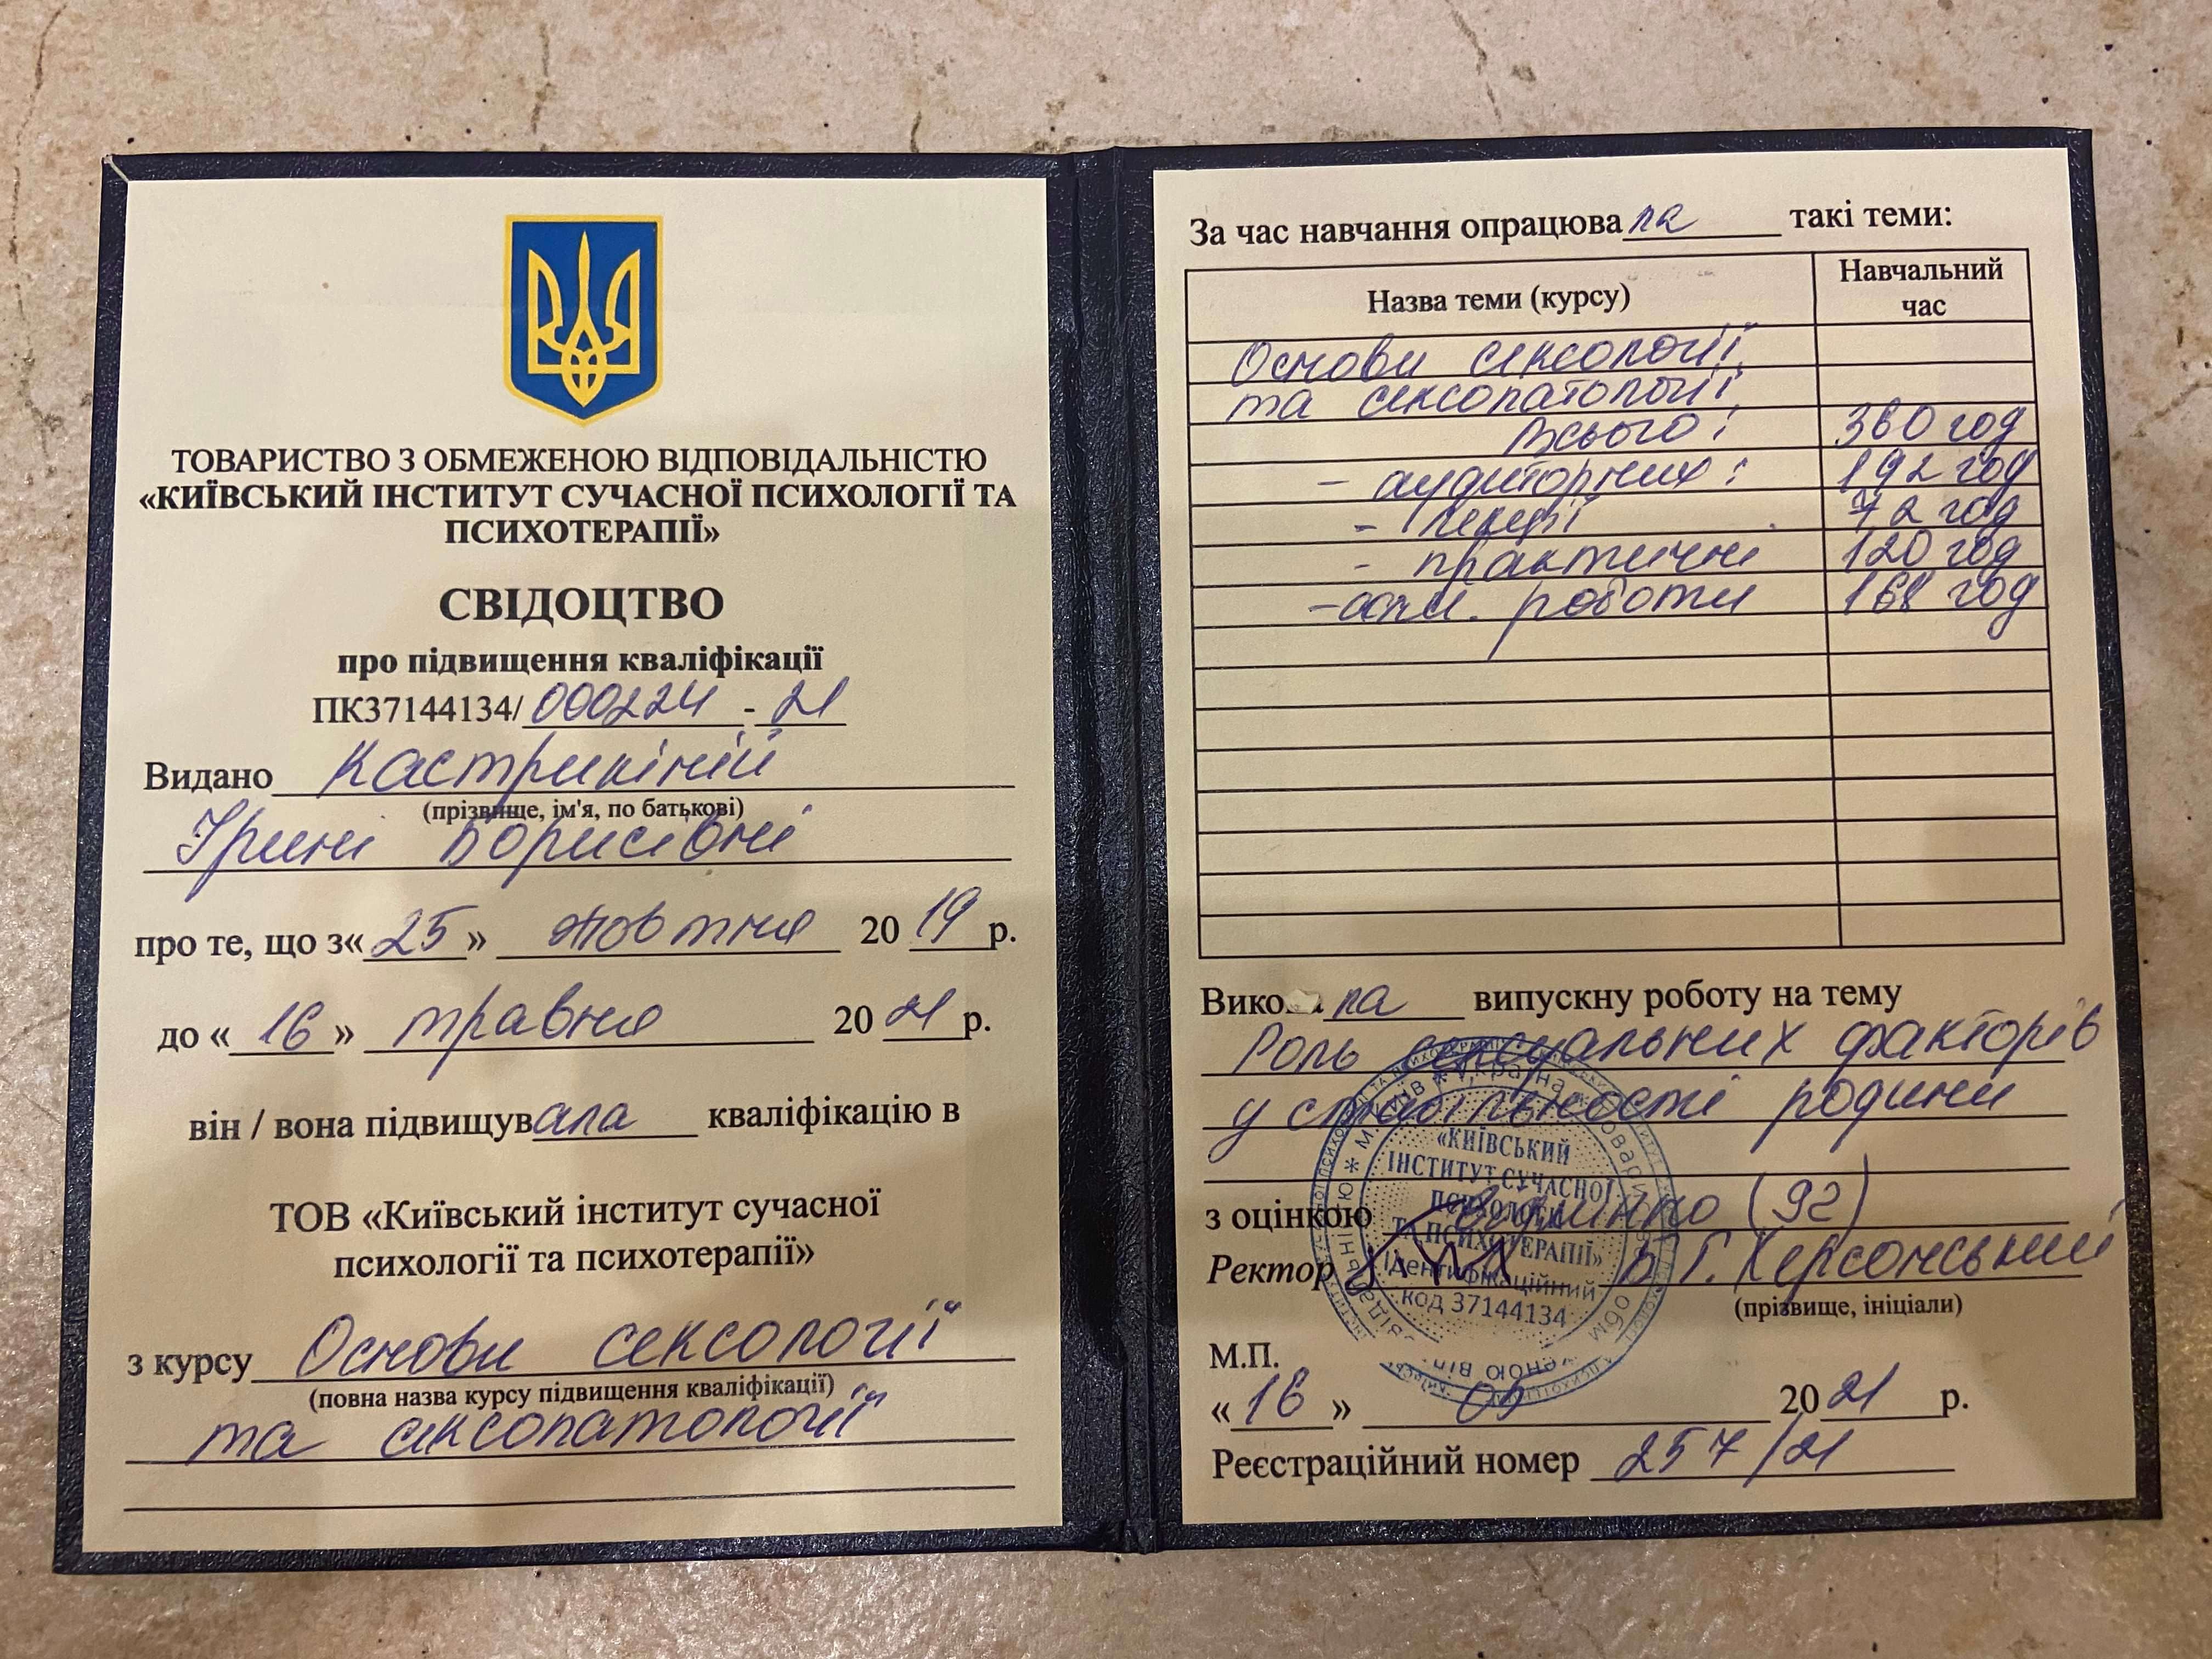 ТОВАРИСТВО З ОБМЕЖЕНОЮ ВІДПОВІДАЛЬНІСТЮ
«КИЇВСЬКИЙ ІНСТИТУТ СУЧАСНОЇ ПСИХОЛОГІЇ ТА
ПСИХОТЕРАПІЇ»
СВІДОЦТВО
про підвищення кваліфікації
ПК37144134/ 000224 - 21
Видано Кастрикіній
(прізвище, ім'я, по батькові)
Ірині Борисівні
про те, що з« 25 » жовтня 20 19 р.
до « 16 » травня 20 21 р.
він / вона підвищувала кваліфікацію в
ТОВ «Київський інститут сучасної
психології та психотерапії»
з курсу Основи сексології
(повна назва курсу підвищення кваліфікації)
та сексопатології
За час навчання опрацювала такі теми:
Назва теми (курсу) Навчальний
час
Основи сексології
та сексопатології
Всього: 360 год
- аудиторних: 192 год
- лекції 72 год
- практичні 120 год
- роботи 168 год
Вико на випускну роботу на тему
Роль сексуальних факторів
у стабільності родини
з оцінкою відмінно (92)
Ректор Б Г. Херсонський
(прізвище, ініціали)
М.П.
« 16 » 05 20 21 р.
Реєстраційний номер 257/21
«КИЇВСЬКИЙ
ІНСТИТУТ СУЧАСНОЇ
ПСИХОЛОГІЇ
ТА ПСИХОТЕРАПІЇ»
Ідентифікаційний
код 37144134